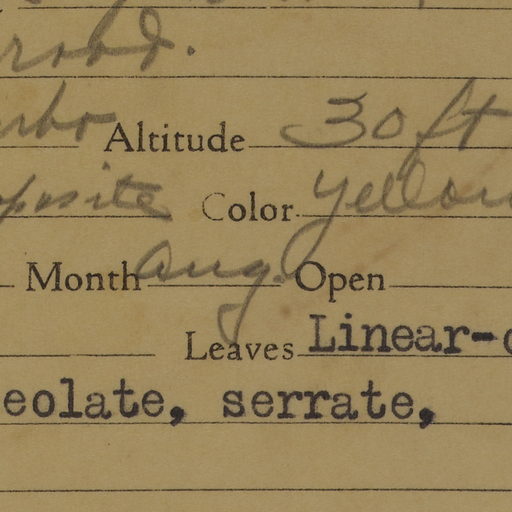 road.
Altitude 30 ft
posite Color Yellow
Month Aug. Open
Leaves Linear-
eolate, serrate,